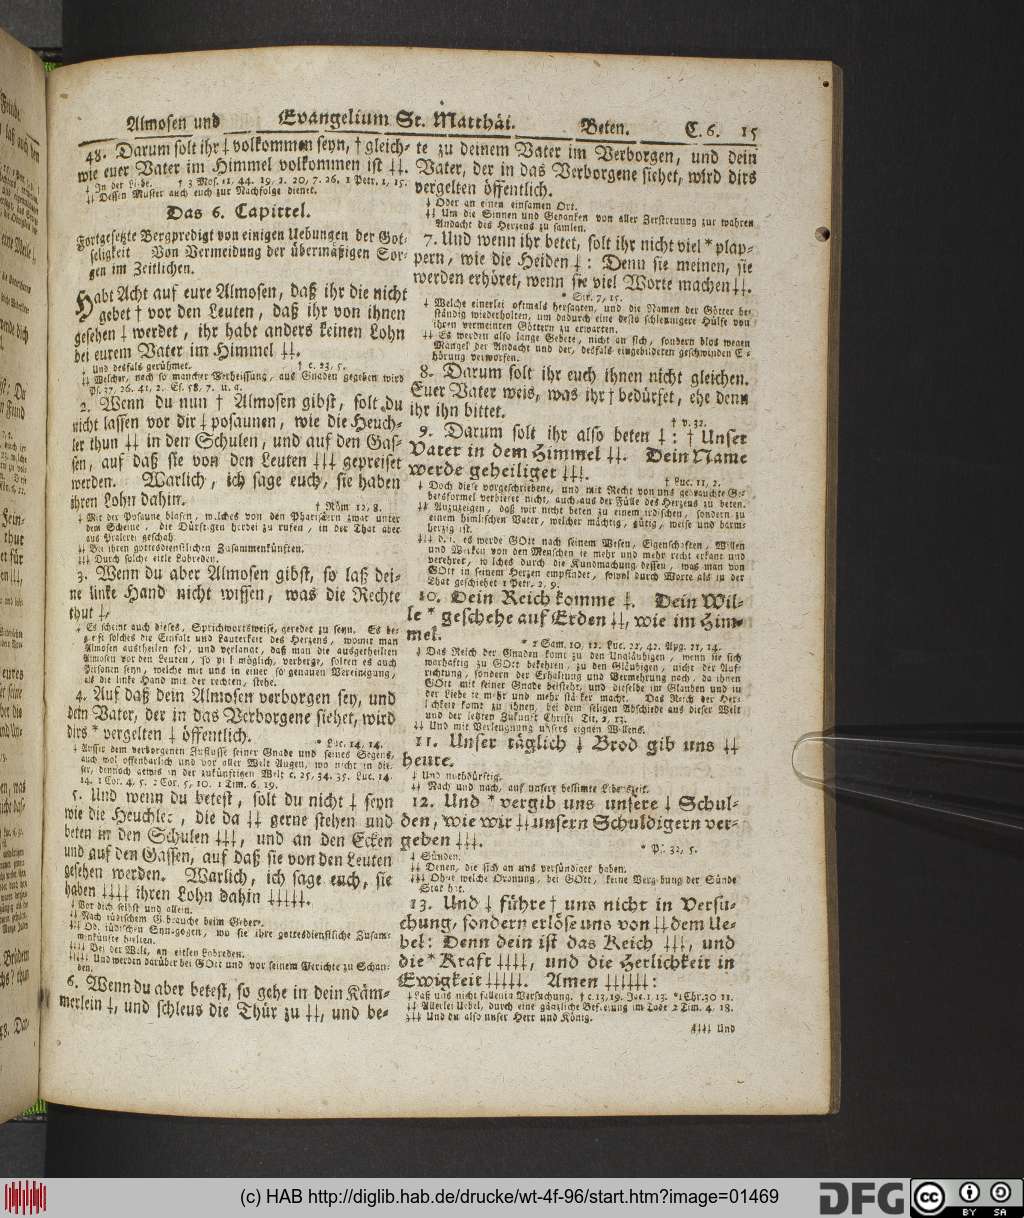 Almosen und Evangelium St. Matthäi. Beten. C. 6. 15
48. Darum solt ihr ‡ volkommen seyn, † gleich-
wie euer Vater im Himmel volkommen ist ‡‡.
‡ In der Liebe. † 3 Mos. 11, 44. 19, 2. 20, 7. 26. 1 Petr. 1, 15.
‡‡ Dessen Muster auch euch zur Nachfolge dienet.
Das 6. Capittel.
Fortgesetzte Bergpredigt von einigen Uebungen der Got-
seligkeit Von Vermeidung der übermäßigen Sor-
gen im Zeitlichen.
Habt Acht auf eure Almosen, daß ihr die nicht
gebet † vor den Leuten, daß ihr von ihnen
gesehen ‡ werdet, ihr habt anders keinen Lohn
bei eurem Vater im Himmel ‡‡.
‡ Und desfals gerühmet. † c. 23, 5.
‡‡ Welcher, nach so mancher Verheissung, aus Gnaden gegeben wird
Ps. 37, 26. 41, 2. Es. 58, 7. u. a.
2. Wenn du nun † Almosen gibst, solt du
nicht lassen vor dir ‡ posaunen, wie die Heuch-
ler thun ‡‡ in den Schulen, und auf den Gas-
sen, auf daß sie von den Leuten ‡‡‡ gepreiset
werden. Warlich, ich sage euch, sie haben
ihren Lohn dahin.
† Röm 12, 8.
‡ Mit der Posaune blasen, welches von den Pharisäern zwar unter
dem Scheine, die Dürftigen herbei zu rufen, in der That aber
aus Pralerei geschah.
‡‡ Bei ihren gottesdienstlichen Zusammenkünften.
‡‡‡ Durch solche eitle Lobreden.
3. Wenn du aber Almosen gibst, so laß dei-
ne linke Hand nicht wissen, was die Rechte
thut ‡,
‡ Es scheint auch dieses, Sprichwortsweise, geredet zu seyn. Es be-
greift solches die Einfalt und Lauterkeit des Herzens, womit man
Almosen austheilen sol, und verlangt, daß man die ausgetheilten
Almosen vor den Leuten, so viel möglich, verberge, solten es auch
Personen seyn, welche mit uns in einer so genauen Vereinigung,
als die linke Hand mit der rechten, stehe.
4. Auf daß dein Almosen verborgen sey, und
dein Vater, der in das Verborgene siehet, wird
dirs * vergelten ‡ öffentlich.
* Luc. 14, 14.
‡ Ausser dem verborgenen Zuflusse seiner Gnade und seines Segens,
auch wol offenbarlich und vor aller Welt Augen, wo nicht in die-
ser, dennoch gewis in der zukünftigen Welt c. 25, 34. 35. Luc. 14,
14. 1 Cor. 4, 5. 2 Cor. 5, 10. 1 Tim. 6, 19.
5. Und wenn du betest, solt du nicht ‡ seyn
wie die Heuchler, die da ‡‡ gerne stehen und
beten in den Schulen ‡‡‡, und an den Ecken
und auf den Gassen, auf daß sie von den Leuten
gesehen werden. Warlich, ich sage euch, sie
haben ‡‡‡‡ ihren Lohn dahin ‡‡‡‡‡.
‡ Vor dich selbst und allein.
‡‡ Nach jüdischem Gebrauche beim Gebete.
‡‡‡ Od. jüdischen Synagogen, wo sie ihre gottesdienstliche Zusam-
menkünfte hielten.
‡‡‡‡ Bei der Welt, an eitlen Lobreden.
‡‡‡‡‡ Und werden darüber bei GOtt und vor seinem Gerichte zu Schan-
den.
6. Wenn du aber betest, so gehe in dein Käm-
merlein ‡, und schleus die Thür zu ‡‡, und be-
te zu deinem Vater im Verborgen, und dein
Vater, der in das Verborgene siehet, wird dirs
vergelten öffentlich.
‡ Oder an einen einsamen Ort.
‡‡ Um die Sinnen und Gedanken von aller Zerstreuung zur wahren
Andacht des Herzens zu samlen.
7. Und wenn ihr betet, solt ihr nicht viel * plap-
pern, wie die Heiden ‡: Denn sie meinen, sie
werden erhöret, wenn sie viel Worte machen ‡‡.
* Sir. 7, 15.
‡ Welche einerlei oftmals hersagten, und die Namen der Götter be-
ständig wiederholten, um dadurch eine desto schleunigere Hülfe von
ihren vermeinten Göttern zu erwarten.
‡‡ Es werden also lange Gebete, nicht an sich, sondern blos wegen
Mangel der Andacht und der, desfals eingebildeten geschwinden E-
hörung verworfen.
8. Darum solt ihr euch ihnen nicht gleichen.
Euer Vater weis, was ihr † bedürfet, ehe denn
ihr ihn bittet.
† v. 32.
9. Darum solt ihr also beten ‡: † Unser
Vater in dem Himmel ‡‡. Dein Name
werde geheiliget ‡‡‡.
† Luc. 11, 2.
‡ Doch diese vorgeschriebene, und mit Recht von uns gebrauchte Ge-
betsformel verbietet nicht, auch aus der Fülle des Herzens zu beten.
‡‡ Anzuzeigen, daß wir nicht beten zu einem irdischen, sondern zu
einem himlischen Vater, welcher mächtig, gütig, weise und barm-
herzig ist.
‡‡‡ d. i. es werde GOtt nach seinem Wesen, Eigenschaften, Willen
und Werken von den Menschen ie mehr und mehr recht erkant und
verehret, welches durch die Kundmachung dessen, was man von
GOtt in seinem Herzen empfindet, sowol durch Worte als in der
That geschiehet 1 Petr. 2, 9.
10. Dein Reich komme ‡. Dein Wil-
le * geschehe auf Erden ‡‡, wie im Him-
mel.
* 2 Sam. 10, 12. Luc. 22, 42. Apg. 21, 14.
‡ Das Reich der Gnaden komt zu den Ungläubigen, wenn sie sich
warhaftig zu GOtt bekehren, zu den Gläubigen, nicht der Auf-
richtung, sondern der Erhaltung und Vermehrung nach, da ihnen
GOtt mit seiner Gnade beisteht, und dieselbe im Glauben und in
der Liebe ie mehr und mehr stärker macht. Das Reich der Her-
lichkeit komt zu ihnen, bei dem seligen Abschiede aus dieser Welt
und der letzten Zukunft Christi Tit. 2, 13.
‡‡ Und mit Verleugnung unsers eignen Willens.
11. Unser täglich ‡ Brod gib uns ‡‡
heute.
‡ Und nothdürftig.
‡‡ Nach und nach, auf unsere bestimte Lebenszeit.
12. Und * vergib uns unsere ‡ Schul-
den, wie wir ‡‡ unsern Schuldigern ver-
geben ‡‡‡.
* Ps. 32, 5.
‡ Sünden.
‡‡ Denen, die sich an uns versündiget haben.
‡‡‡ Ohne welche Ordnung, bei GOtt, keine Vergebung der Sünde
Stat hat.
13. Und ‡ führe † uns nicht in Versu-
chung, sondern erlöse uns von ‡‡ dem Ue-
bel: Denn dein ist das Reich ‡‡‡, und
die * Kraft ‡‡‡‡, und die Herlichkeit in
Ewigkeit ‡‡‡‡‡. Amen ‡‡‡‡‡‡:
‡ Laß uns nicht fallen in Versuchung. † c. 13, 19. Joc. 1, 13. * 1 Chr. 30 11.
‡‡ Allerlei Uebel, durch eine gänzliche Befreiung im Tode 2 Tim. 4, 18.
‡‡‡ Und du also unser Herr und König.
‡‡‡‡ Und
(c) HAB http://diglib.hab.de/drucke/wt-4f-96/start.htm?image=01469
DFG
cc
BY SA